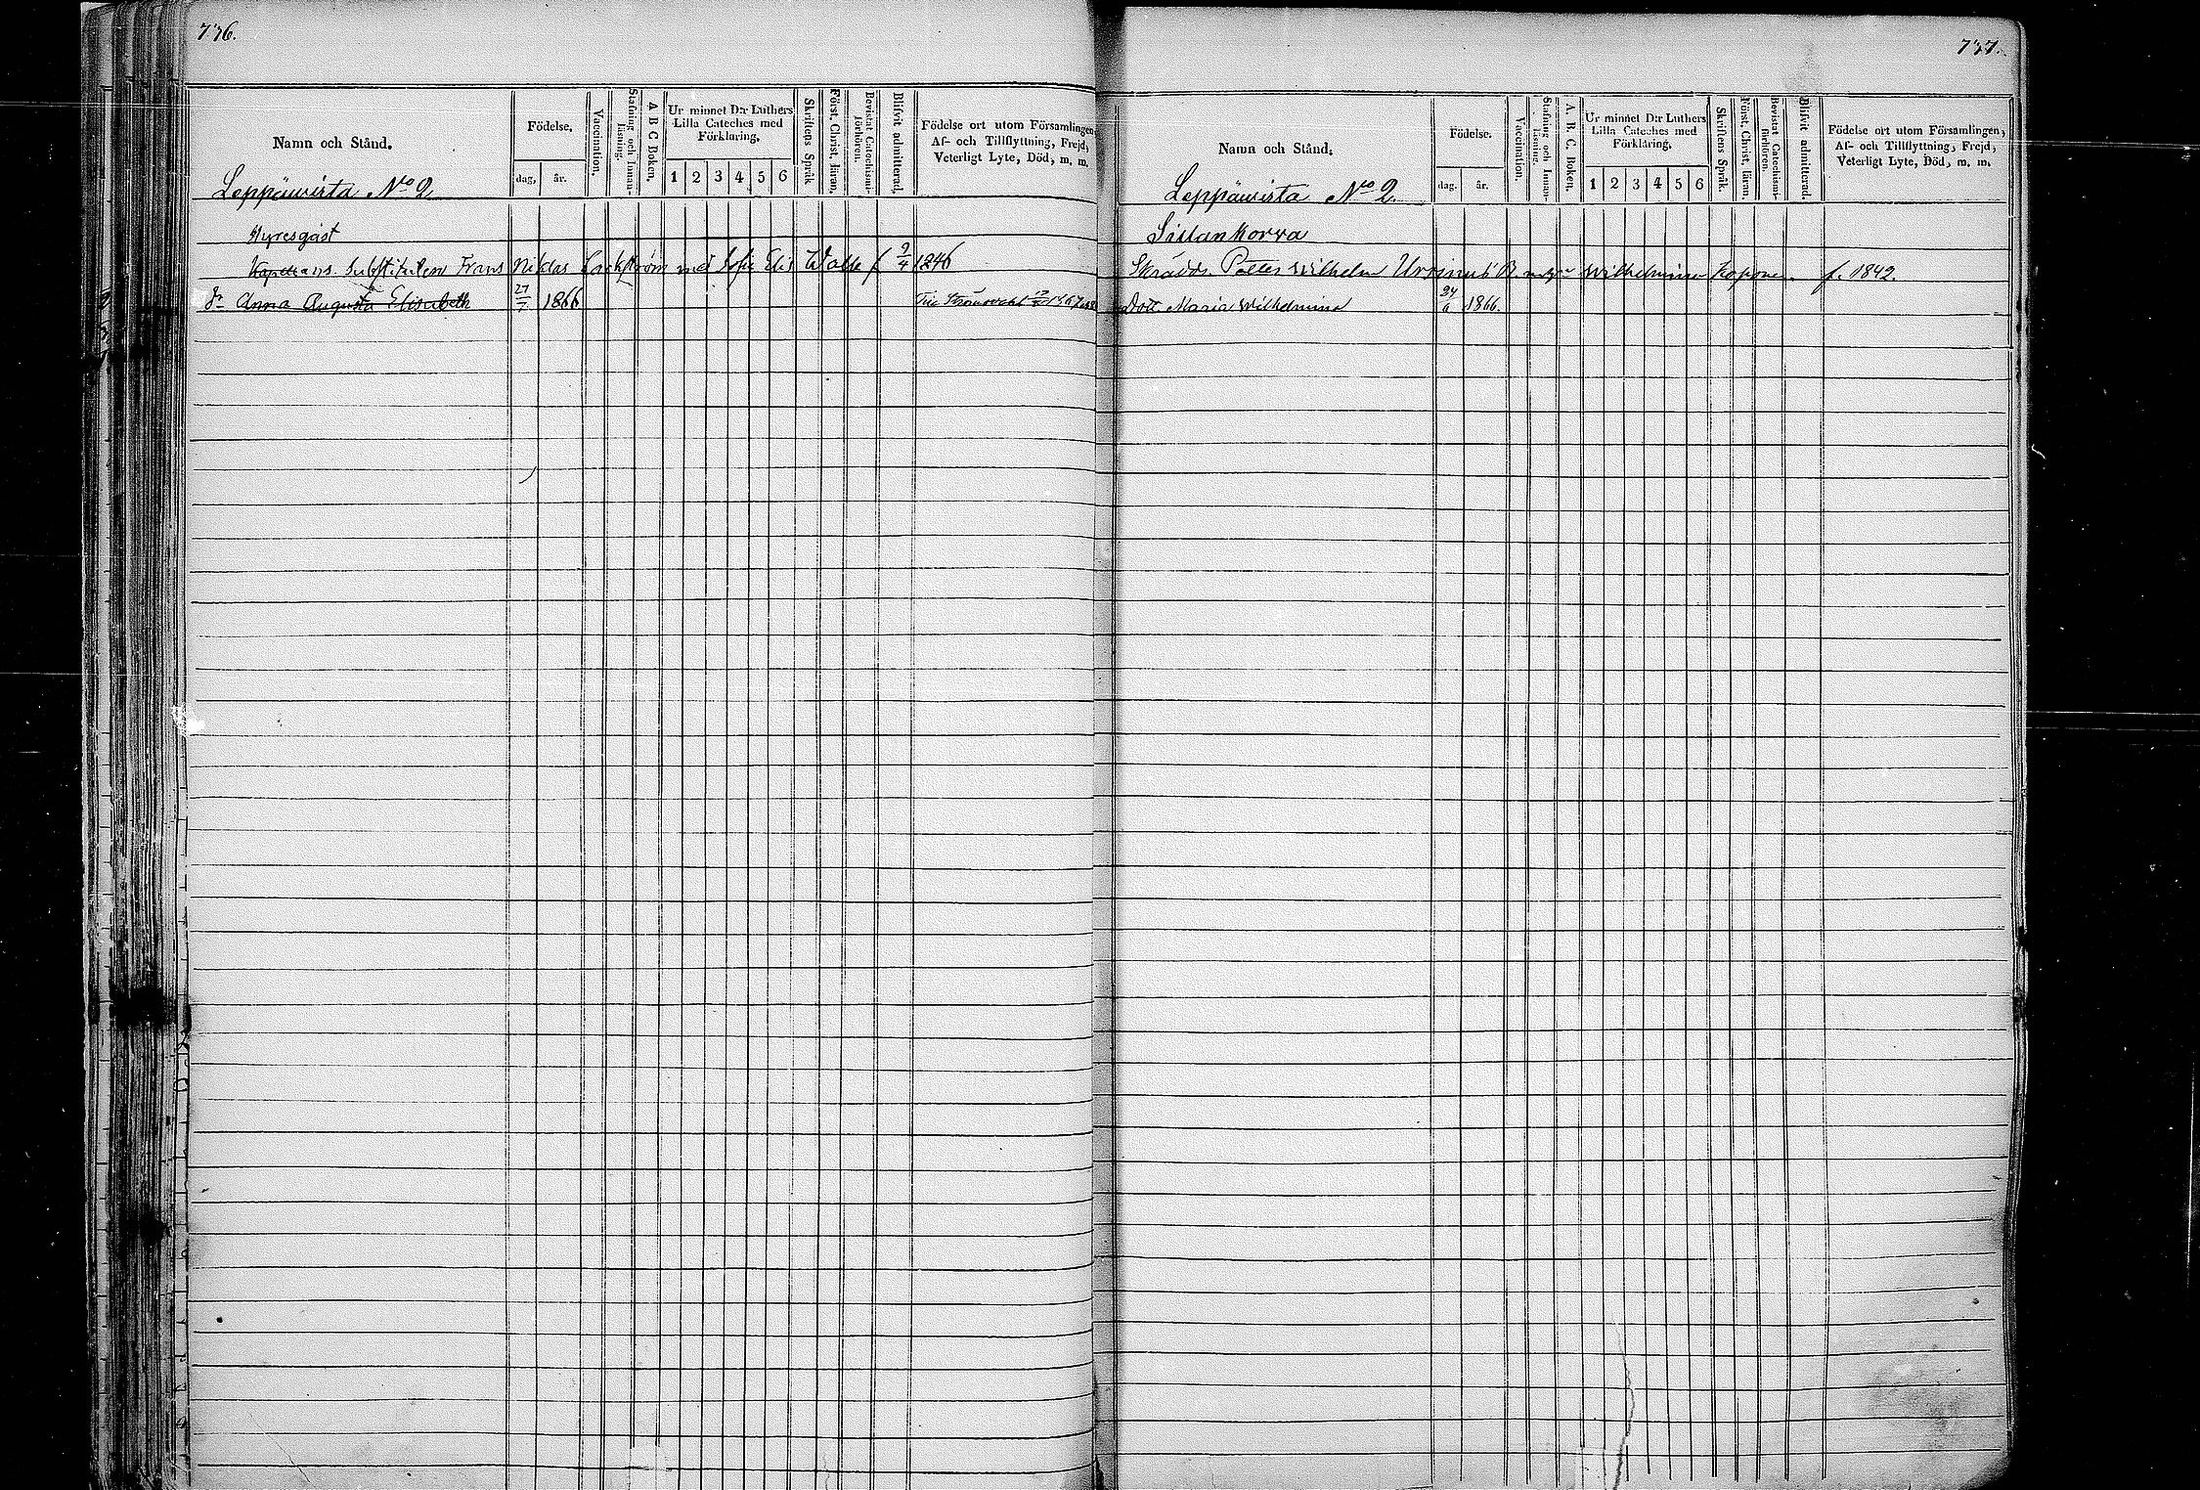 776.
Namn och Stånd.
Födelse,
dag,
år.
Vaccination.
Stafning och Innan-
läsning.
A B C Boken.
Ur minnet D:r Luthers
Lilla Cateches med
Förklaring.
1 2 3 4 5 6
Skriftens Språk
Först. Christ. läran.
Bevistat Catechismi-
förhören.
Blifvit admitterad.
Födelse ort utom Församlingen,
Af- och Tillflyttning, Frejd,
Veterligt Lyte, Död, m. m.
Leppäwirta No 2
Hyresgäst
Substituten Frans Niklas med Sofie f 9/4 1846
Anna Augusta Elisabeth 27/7 1866
737.
Namn och Stånd.
Födelse.
dag.
år.
Vaccination.
Stafning och Innan-
läsning.
A. B. C. Boken.
Ur minnet D:r Luthers
Lilla Cateches med
Förklaring.
1 2 3 4 5 6
Skriftens Språk.
Först. Christ. läran.
Bevistat Catechismi-
förhören.
Blifvit admitterad.
Födelse ort utom Församlingen,
Af- och Tillflyttning, Frejd,
Veterligt Lyte, Död, m. m.
Leppäwirta No 2.
Sillankorva
Wilhelm Ursinus Wilhelmina Koponen f. 1842.
Dott. Maria Wilhelmina 24/6 1866.